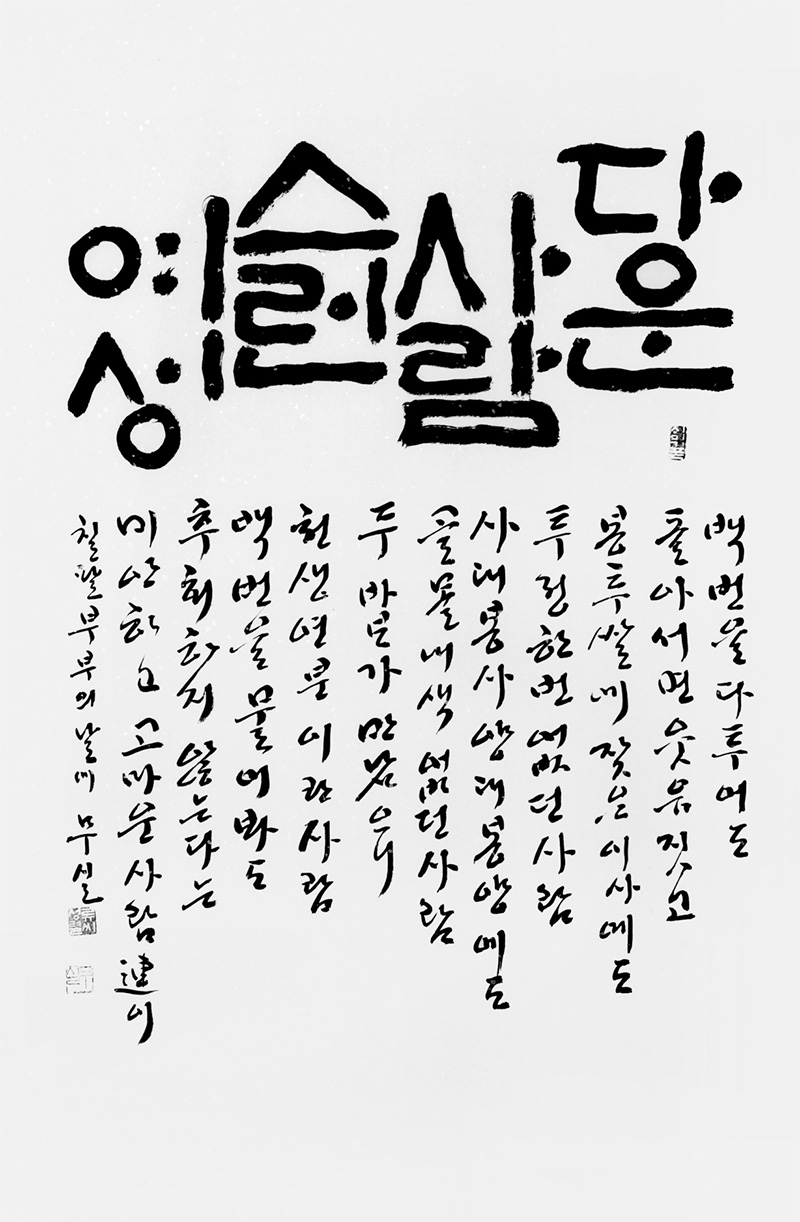 다운
사람
스런
여성
백번을 다투어도
돌아서면 웃음 짓고
봉투쌀에 잦은 이사에도
투정 한번 없던 사람
사대봉사 양대봉양에도
골몰내색 없던 사람
두 바본가 만남
천생연분이란 사람
백번을 물어봐도
후회하지 않는다는
미안하고 고마운 사람 連이
칠팔 부부의 날에 무실